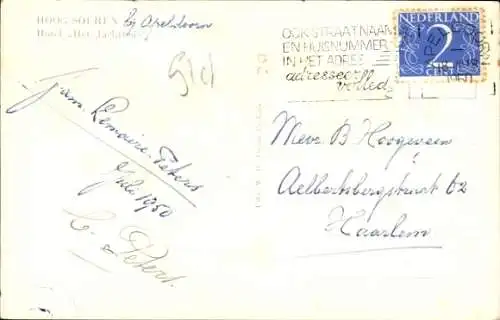 HOOG SOEREN bij Apeldoorn
Hotel „Het Jachthuis”
Fam. Lemaire-Peters
Juli 1950
C. Peters.
OOK STRAATNAAM
EN HUISNUMMER
IN HET ADRES
adresseer
volled
NEDERLAND
2
CENT
Mevr B Hoogeveen
Aelbertsbergstraat 62
Haarlem